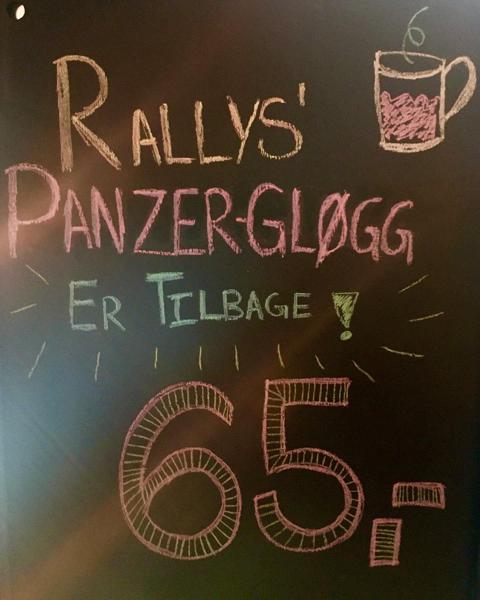 RALLYS'
PANZER-GLØGG
ER TILBAGE!
65,-